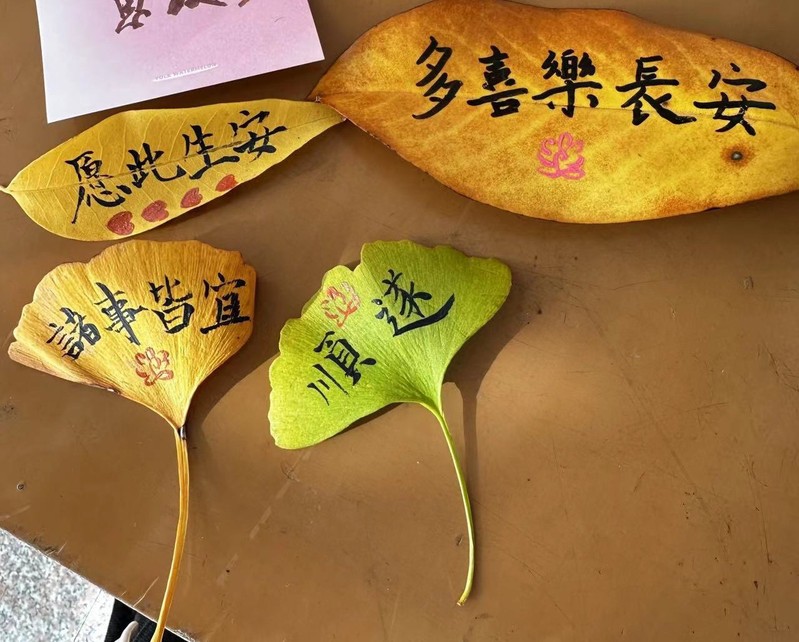 多喜樂長安
愿此生安
諸事皆宜
順遂